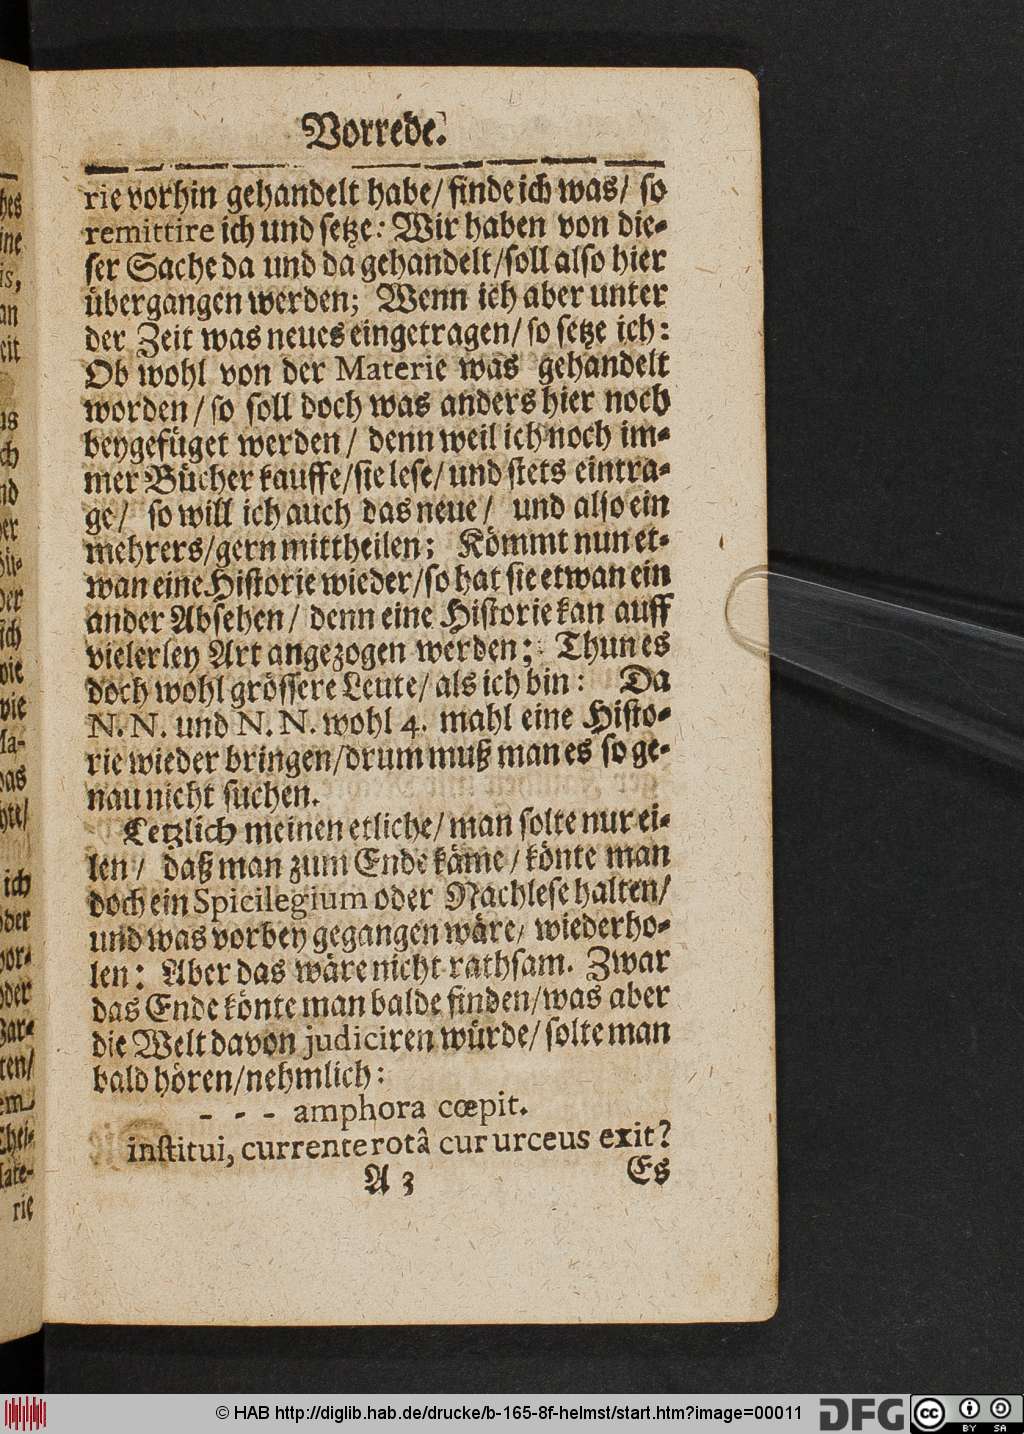 Vorrede.
rie vorhin gehandelt habe/ finde ich was/ so
remittire ich und setze: Wir haben von die-
ser Sache da und da gehandelt/soll also hier
übergangen werden; Wenn ich aber unter
der Zeit was neues eingetragen/ so setze ich:
Ob wohl von der Materie was gehandelt
worden/ so soll doch was anders hier noch
beygefüget werden/ denn weil ich noch im-
mer Bücher kauffe/sie lese/ und stets eintra-
ge/ so will ich auch das neue/ und also ein
mehrers/gern mittheilen; Kömmt nun et-
wan eine Historie wieder/so hat sie etwan ein
ander Absehen/ denn eine Historie kan auff
vielerley Art angezogen werden; Thun es
doch wohl grössere Leute/ als ich bin: Da
N. N. und N. N. wohl 4. mahl eine Histo-
rie wieder bringen/drum muß man es so ge-
nau nicht suchen.
Letzlich meinen etliche/ man solte nur ei-
len/ daß man zum Ende käme/ könte man
doch ein Spicilegium oder Nachlese halten/
und was vorbey gegangen wäre/ wiederho-
len: Aber das wäre nicht rathsam. Zwar
das Ende könte man balde finden/was aber
die Welt davon judiciren würde/ solte man
bald hören/nehmlich:
- - - amphora cœpit.
institui, currente rotâ cur urceus exit?
A 3 Es
© HAB http://diglib.hab.de/drucke/b-165-8f-helmst/start.htm?image=00011
DFG
cc BY SA